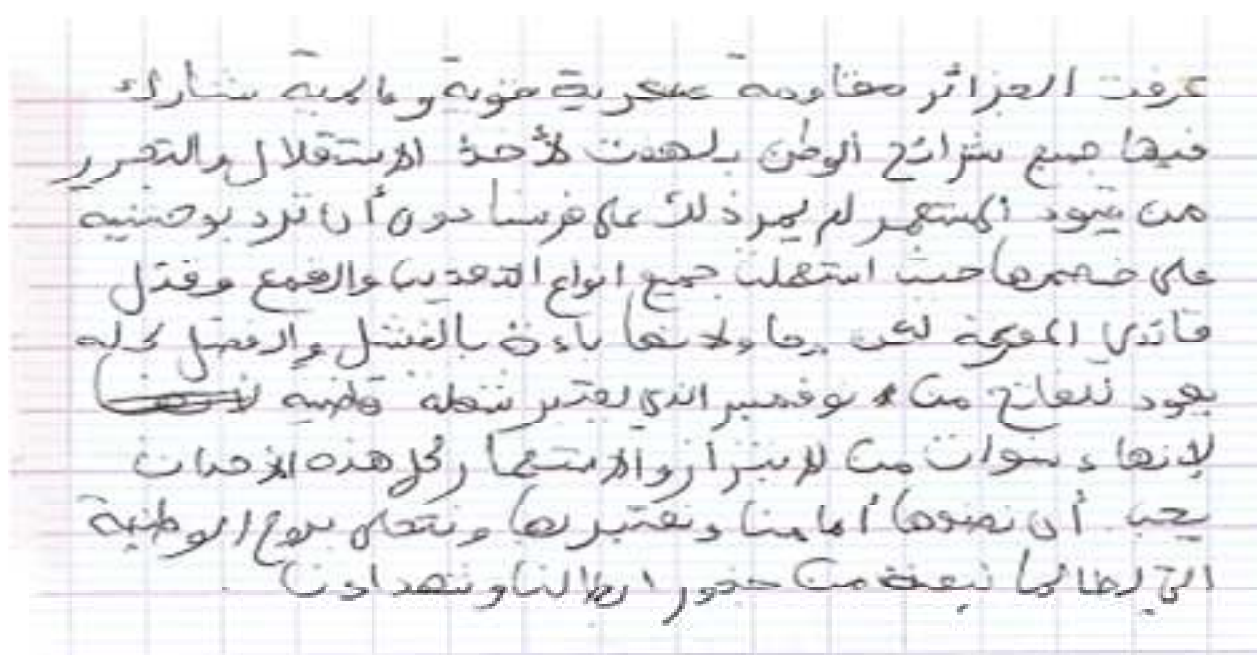 عرفت الجزائر مقاومة عسكرية قوية و تشارك
فيها جميع شرائح الوطن بهدف لأخذ الاستقلال والتحرر
من قيود المستعمر لم يمر ذلك على فرنسا دون أن ترد بوحشية
على خصمها حيث استعملت جميع انواع التعذيب والقمع وقتل
قائدي المعركة لكن محاولاتها باءة بالفشل والفضل كله
يعود للفاتح من نوفمبر الذي يعتبر نقطة
لإنهاء سنوات من الإبتزاز والاستعمار وكل هذه الأحداث
يجب أن نضعها أمامنا ونعتبر بها ونتحلى بروح الوطنية
التي لطالما نبعة من جذور ابطالنا وشهداءنا .